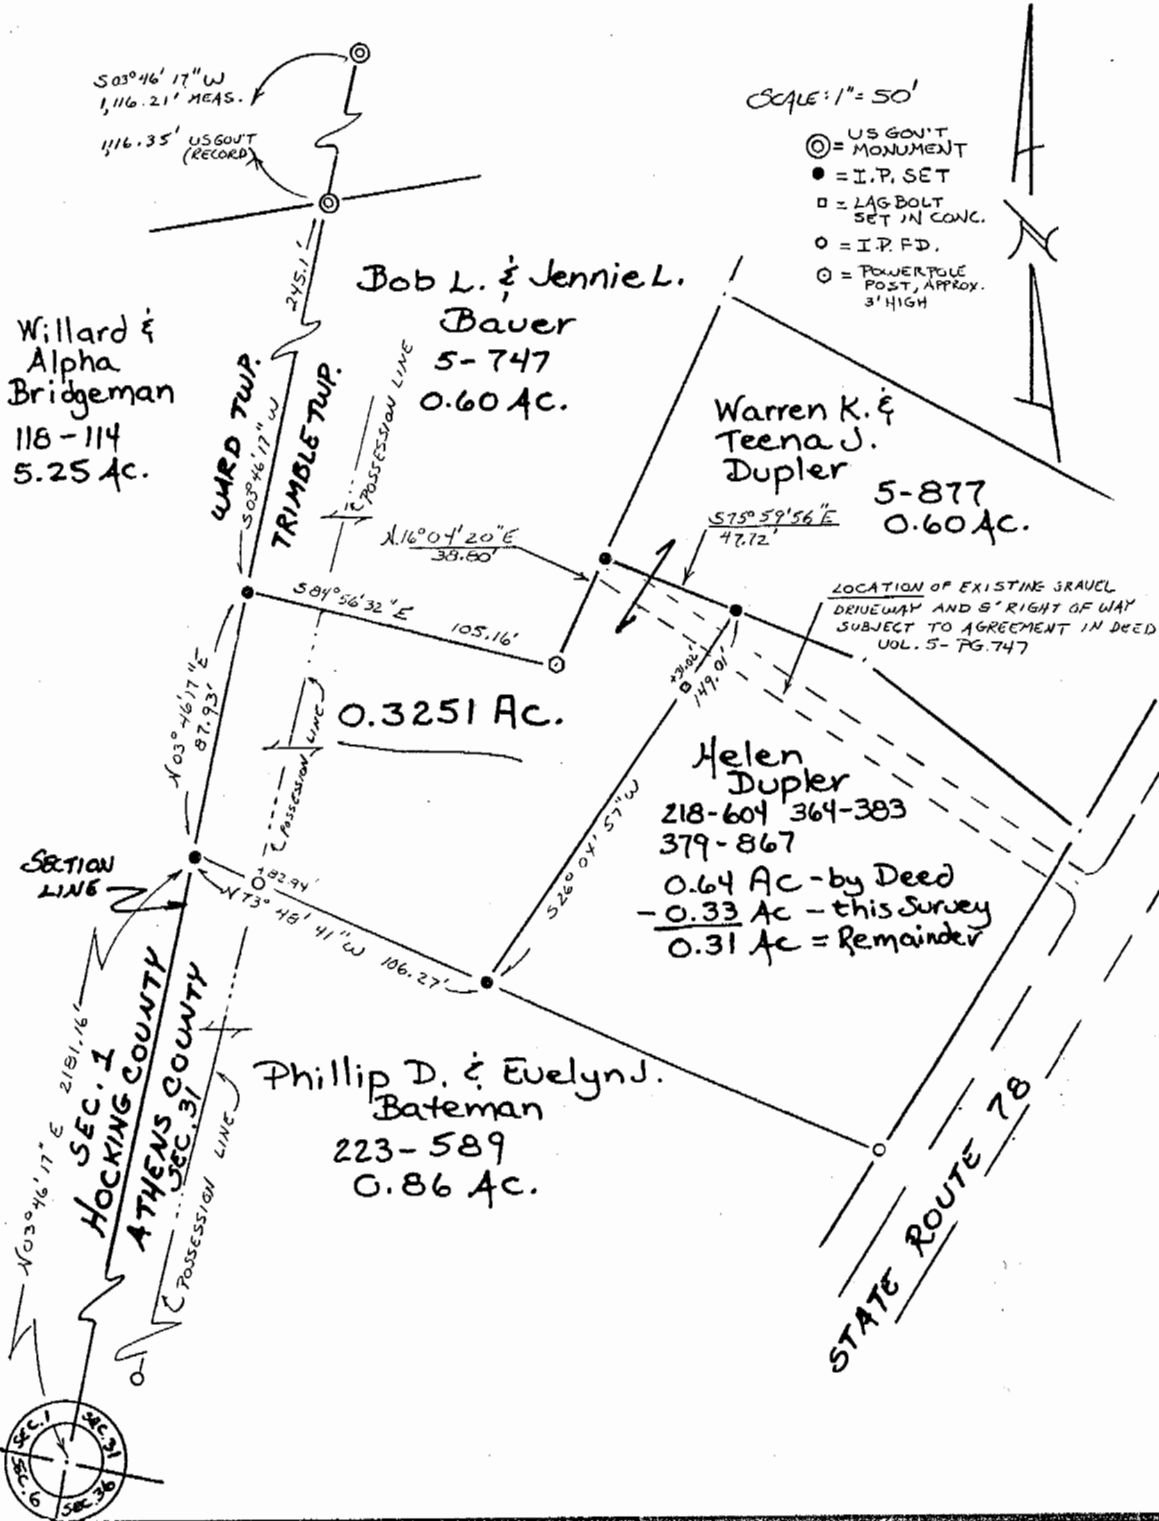 S03°46'17"W
1,116.21' MEAS.
1,116.35' US GOV'T
(RECORD)
SCALE: 1" = 50'
= US GOV'T
MONUMENT
= I.P. SET
= LAG BOLT
SET IN CONC.
= I.P. FD.
= POWERPOLE
POST, APPROX.
3' HIGH
N
245.1'
Bob L. & Jennie L.
Bauer
5-747
0.60 AC.
Willard &
Alpha
Bridgeman
118-114
5.25 Ac.
WARD TWP.
S03°46'17"W
TRIMBLE TWP.
POSSESSION LINE
Warren K. &
Teena J.
Dupler
5-877
0.60 AC.
N.16°04'20"E
38.80'
S75°59'56"E
47.72'
LOCATION OF EXISTING GRAVEL
DRIVEWAY AND 8' RIGHT OF WAY
SUBJECT TO AGREEMENT IN DEED
VOL. 5-PG. 747
S84°56'32"E
105.16'
+31.02'
149.01'
N03°46'17"E
87.93'
0.3251 Ac.
POSSESSION LINE
Helen
Dupler
218-604 364-383
379-867
0.64 AC - by Deed
-0.33 AC - this Survey
0.31 Ac = Remainder
S26° 57"W
SECTION
LINE
+82.94'
N73°48'41"W
106.27'
N03°46'17"E 2181.16'
SEC. 1
HOCKING COUNTY
ATHENS COUNTY
SEC. 31
POSSESSION LINE
Phillip D. & Evelyn J.
Bateman
223-589
0.86 AC.
STATE ROUTE 78
SEC. 1
SEC. 31
SEC. 6
SEC. 36